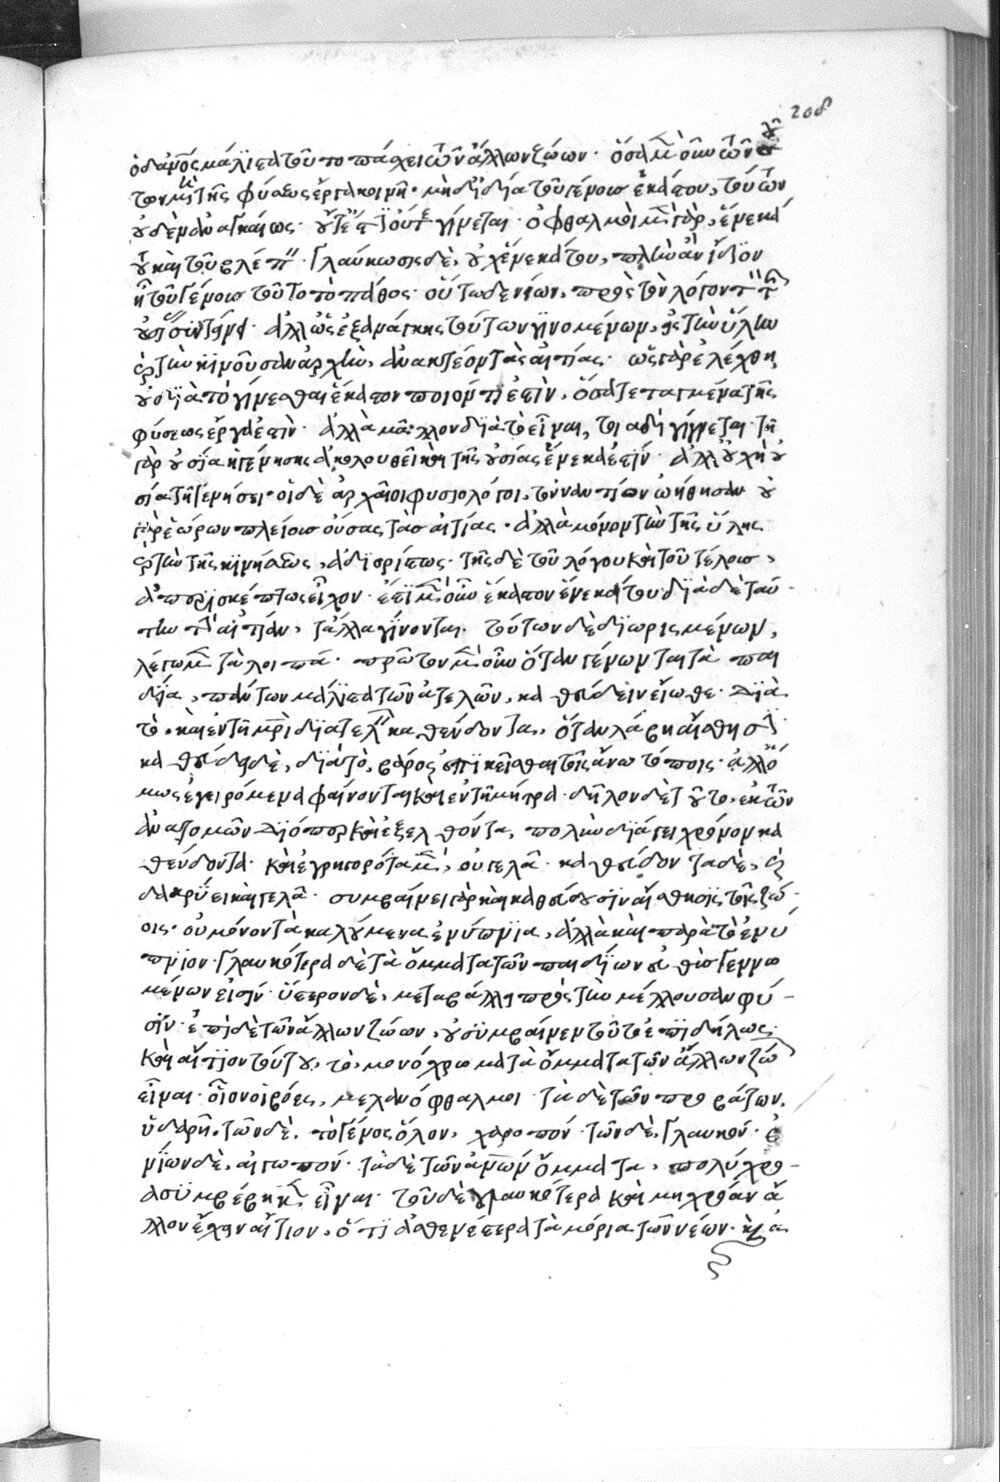 208
ὁ δ' ἄν̅ο̅ς μάλιστα τοῦτο πάσχει τῶν ἄλλων ζώων· ὅσα μ̅ οὖν
τον μὴ τῆς φύσεως ἔργα κοινῇ· μὴ δ' ἴδια τοῦ γένους ἑκάστου, τούτων
οὐδὲν ἀναγκαίως· οὔτε ἐστὶν οὔτε γίνεται· ὀφθαλμοὶ μ̅ γὰρ, ἕνεκά
του καὶ τοῦ βλέπειν· γλαύκωσις δὲ, οὐχ ἕνεκά του, πλὴν ἂν ἴδιον
ᾖ τοῦ γένους τοῦτο τὸ πάθος· οὔτ' ἐνίων, πρὸς τὸν λόγον
ἀλλ' ὡς ἐξ ἀνάγκης τούτων γινομένων, εἰς τὴν ὕλην
καὶ τὴν κινοῦσαν ἀρχὴν, ἀνακτέον τὰς αἰτίας· ὥσπερ ἐλέχθη
οὐ διὰ τὸ γίνεσθαι ἕκαστον ποιόν τι ἐστὶν, ὅσα τεταγμένα τῆς
φύσεως ἔργα ἐστὶν· ἀλλὰ μᾶλλον διὰ τὸ εἶναι, τοιαδὶ γίγνεται· τῇ
γὰρ οὐσίᾳ ἡ γένησις ἀκολουθεῖ καὶ τῆς οὐσίας ἕνεκά ἐστὶν· ἀλλ' οὐχ ἡ οὐ
σία τῇ γενήσει· οἱ δὲ ἀρχαῖοι φυσιολόγοι, τοὐναντίον ὠήθησαν· οὐ
γὰρ ἑώρων πλείους οὔσας τὰς αἰτίας· ἀλλὰ μόνον τὴν τῆς ὕλης
καὶ τὴν τῆς κινήσεως, ἀδιορίστως· τῆς δὲ τοῦ λόγου καὶ τοῦ τέλους,
ἀπορισκέπτως εἶχον· ἔστι μ̅ οὖν ἕκαστον ἕνεκά του διὰ δὲ ταύ-
την τ̅ αἰτίαν, τἄλλα γίνονται. τούτων δὲ διωρισμένων,
λέγωμ̅ τὰ λοιπά· πρῶτον μ̅ οὖν ὅταν γένωνται τὰ παι
δία, πάντων μάλιστα τῶν ἀτελῶν, καθεύδειν εἴωθε· διὰ
τὸ, καὶ ἐν τῇ μ̅ρ̅ὶ διατελεῖν καθεύδοντα, ὅταν λάβῃ αἴσθησιν
καθεύδῃ δὲ, διὰ τὸ, βάρος ἐπικεῖσθαι τοῖς ἄνω τόποις· ἀλλ' ὅ
μως ἐγειρόμενα φαίνονται καὶ ἐν τῇ μήτρᾳ· δῆλον δὲ τοῦτο, ἐκ τῶν
ἀνατομῶν διόπερ καὶ ἐξελθόντα, πολὺν διάγει χρόνον κα
θεύδοντα· καὶ ἐγρηγορότα μ̅, οὐ γελᾷ· καθεύδοντα δὲ, καὶ
δακρύει καὶ γελᾷ· συμβαίνει γὰρ καὶ καθεύδουσιν αἴσθησις τοῖς ζώ-
οις· οὐ μόνον τὰ καλούμενα ἐνύπνια, ἀλλὰ καὶ παρὰ τὸ ἐνύ
πνιον· γλαυκότερα δὲ τὰ ὄμματα τῶν παιδίων εὐθὺς γεννω
μένων εἰσίν· ὕστερον δὲ, μεταβάλλῃ πρὸς τὴν μέλλουσαν φύ-
σιν· ἐπὶ δὲ τῶν ἄλλων ζώων, οὐ συμβαίνει τοῦτ' ἐπιδήλως·
καὶ αἴτιον τούτου, τὸ, μονόχρωμα τὰ ὄμματα τῶν ἄλλων ζώ
εἶναι· οἷον οἱ βόες, μελανόφθαλμοι· τὰ δὲ τῶν προβάτων,
ὑδαρῆ· τῶν δὲ, τὸ γένος ὅλον, χαροπόν· τῶν δὲ, γλαυκόν· ἐ
νίων δὲ, αἰγωπόν· τὰ δὲ τῶν ἀν̅ων ὄμματα, πολύχρο-
α συμβέβηκεν εἶναι· τοῦ δὲ γλαυκότερα καὶ μὴ χρόαν ἄ
λλον ἔχειν αἴτιον, ὅτι ἀσθενέστερα τὰ μόρια τῶν νέων·